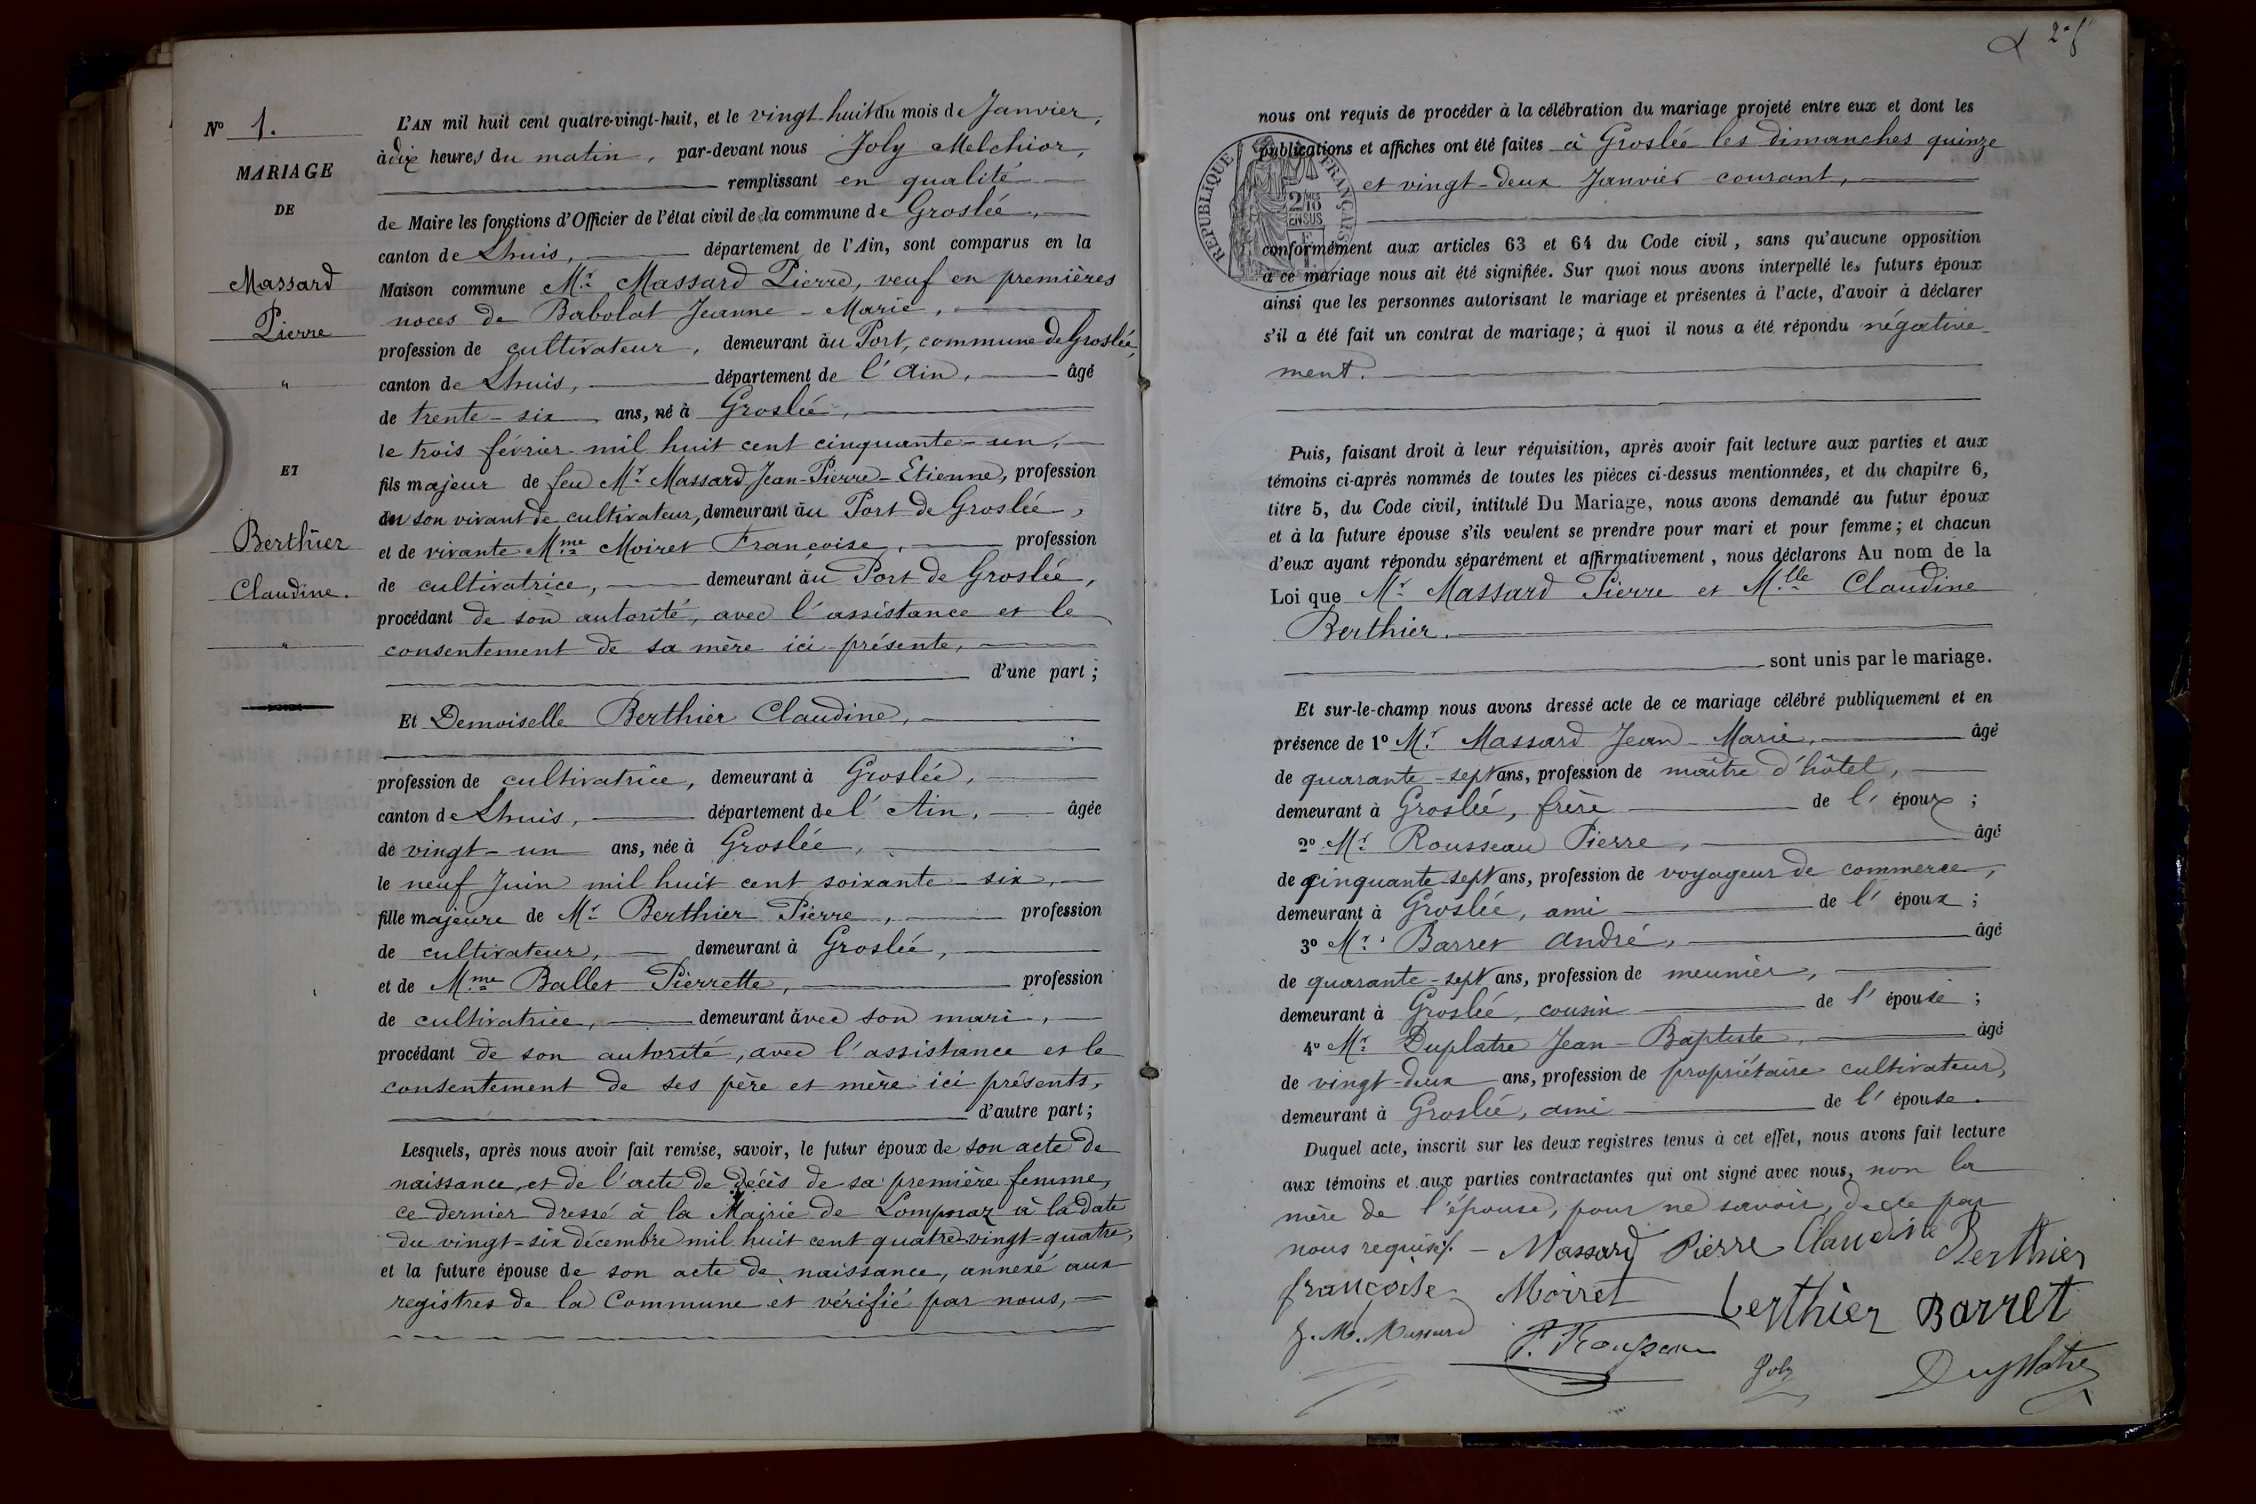 N° 1.
MARIAGE
DE
Massard
Pierre
"
ET
Berthier
Claudine.
"
L'AN mil huit cent quatre-vingt-huit, et le vingt-huit du mois de Janvier,
à dix heures du matin, par-devant nous Joly Melchior,
remplissant en qualité
de Maire les fonctions d'Officier de l'état civil de la commune de Groslée,
canton de Lhuis, département de l'Ain, sont comparus en la
Maison commune Mr Massard Pierre, veuf en premières
noces de Babolat Jeanne-Marie,
profession de cultivateur, demeurant au Port, commune de Groslée,
canton de Lhuis, département de l'Ain, âgé
de trente-six ans, né à Groslée,
le trois février mil huit cent cinquante-un,
fils majeur de feu Mr Massard Jean-Pierre-Etienne, profession
en son vivant de cultivateur, demeurant au Port de Groslée,
et de vivante Mme Moiret Françoise, profession
de cultivatrice, demeurant au Port de Groslée,
procédant de son autorité, avec l'assistance et le
consentement de sa mère ici présente,
d'une part;
Et Demoiselle Berthier Claudine,
profession de cultivatrice, demeurant à Groslée,
canton de Lhuis, département de l'Ain, âgée
de vingt-un ans, née à Groslée,
le neuf Juin mil huit cent soixante-six,
fille majeure de Mr Berthier Pierre, profession
de cultivateur, demeurant à Groslée,
et de Mme Ballet Pierrette, profession
de cultivatrice, demeurant avec son mari,
procédant de son autorité, avec l'assistance et le
consentement de ses père et mère ici présents,
d'autre part;
Lesquels, après nous avoir fait remise, savoir, le futur époux de son acte de
naissance, et de l'acte de décès de sa première femme,
ce dernier dressé à la Mairie de Lompnaz à la date
du vingt-six décembre mil huit cent quatre-vingt-quatre,
et la future épouse de son acte de naissance, annexé aux
registres de la Commune et vérifié par nous,
nous ont requis de procéder à la célébration du mariage projeté entre eux et dont les
publications et affiches ont été faites à Groslée les dimanches quinze
et vingt-deux Janvier courant,
RÉPUBLIQUE FRANÇAISE
2/10mes
EN SUS
conformément aux articles 63 et 64 du Code civil, sans qu'aucune opposition
à ce mariage nous ait été signifiée. Sur quoi nous avons interpellé les futurs époux
ainsi que les personnes autorisant le mariage et présentes à l'acte, d'avoir à déclarer
s'il a été fait un contrat de mariage; à quoi il nous a été répondu négative-
ment.
Puis, faisant droit à leur réquisition, après avoir fait lecture aux parties et aux
témoins ci-après nommés de toutes les pièces ci-dessus mentionnées, et du chapitre 6,
titre 5, du Code civil, intitulé Du Mariage, nous avons demandé au futur époux
et à la future épouse s'ils veulent se prendre pour mari et pour femme; et chacun
d'eux ayant répondu séparément et affirmativement, nous déclarons Au nom de la
Loi que Mr Massard Pierre et Mlle Claudine
Berthier.
sont unis par le mariage.
Et sur-le-champ nous avons dressé acte de ce mariage célébré publiquement et en
présence de 1° Mr Massard Jean-Marie, âgé
de quarante-sept ans, profession de maître d'hôtel,
demeurant à Groslée, frère de l'époux;
2° Mr Rousseau Pierre, âgé
de cinquante-sept ans, profession de voyageur de commerce,
demeurant à Groslée, ami de l'époux;
3° Mr Barret André, âgé
de quarante-sept ans, profession de meunier,
demeurant à Groslée, cousin de l'épouse;
4° Mr Duplatre Jean-Baptiste, âgé
de vingt-deux ans, profession de propriétaire cultivateur,
demeurant à Groslée, ami de l'épouse.
Duquel acte, inscrit sur les deux registres tenus à cet effet, nous avons fait lecture
aux témoins et aux parties contractantes qui ont signé avec nous, non la
mère de l'épouse, pour ne savoir, de ce par
nous requise. - Massard Pierre Claudine Berthier
françoise Moiret berthier Barret
J. M. Massard P. Rousseau Joly Duplatre